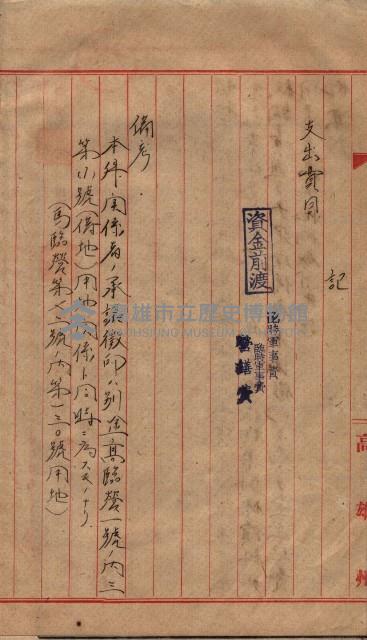 記
支出費目
資金前渡
臨時軍事費
臨時軍事費
營繕費
備考
本件関係者ノ承諾徴印ハ別途高臨營一號ノ内三
第小號(借地)用地関係ト同時ニ為スモノナリ
(馬臨營第一號ノ内第一三〇號用地)
高雄州
高雄市立歷史博物館
KAOHSIUNG MUSEUM OF HISTORY